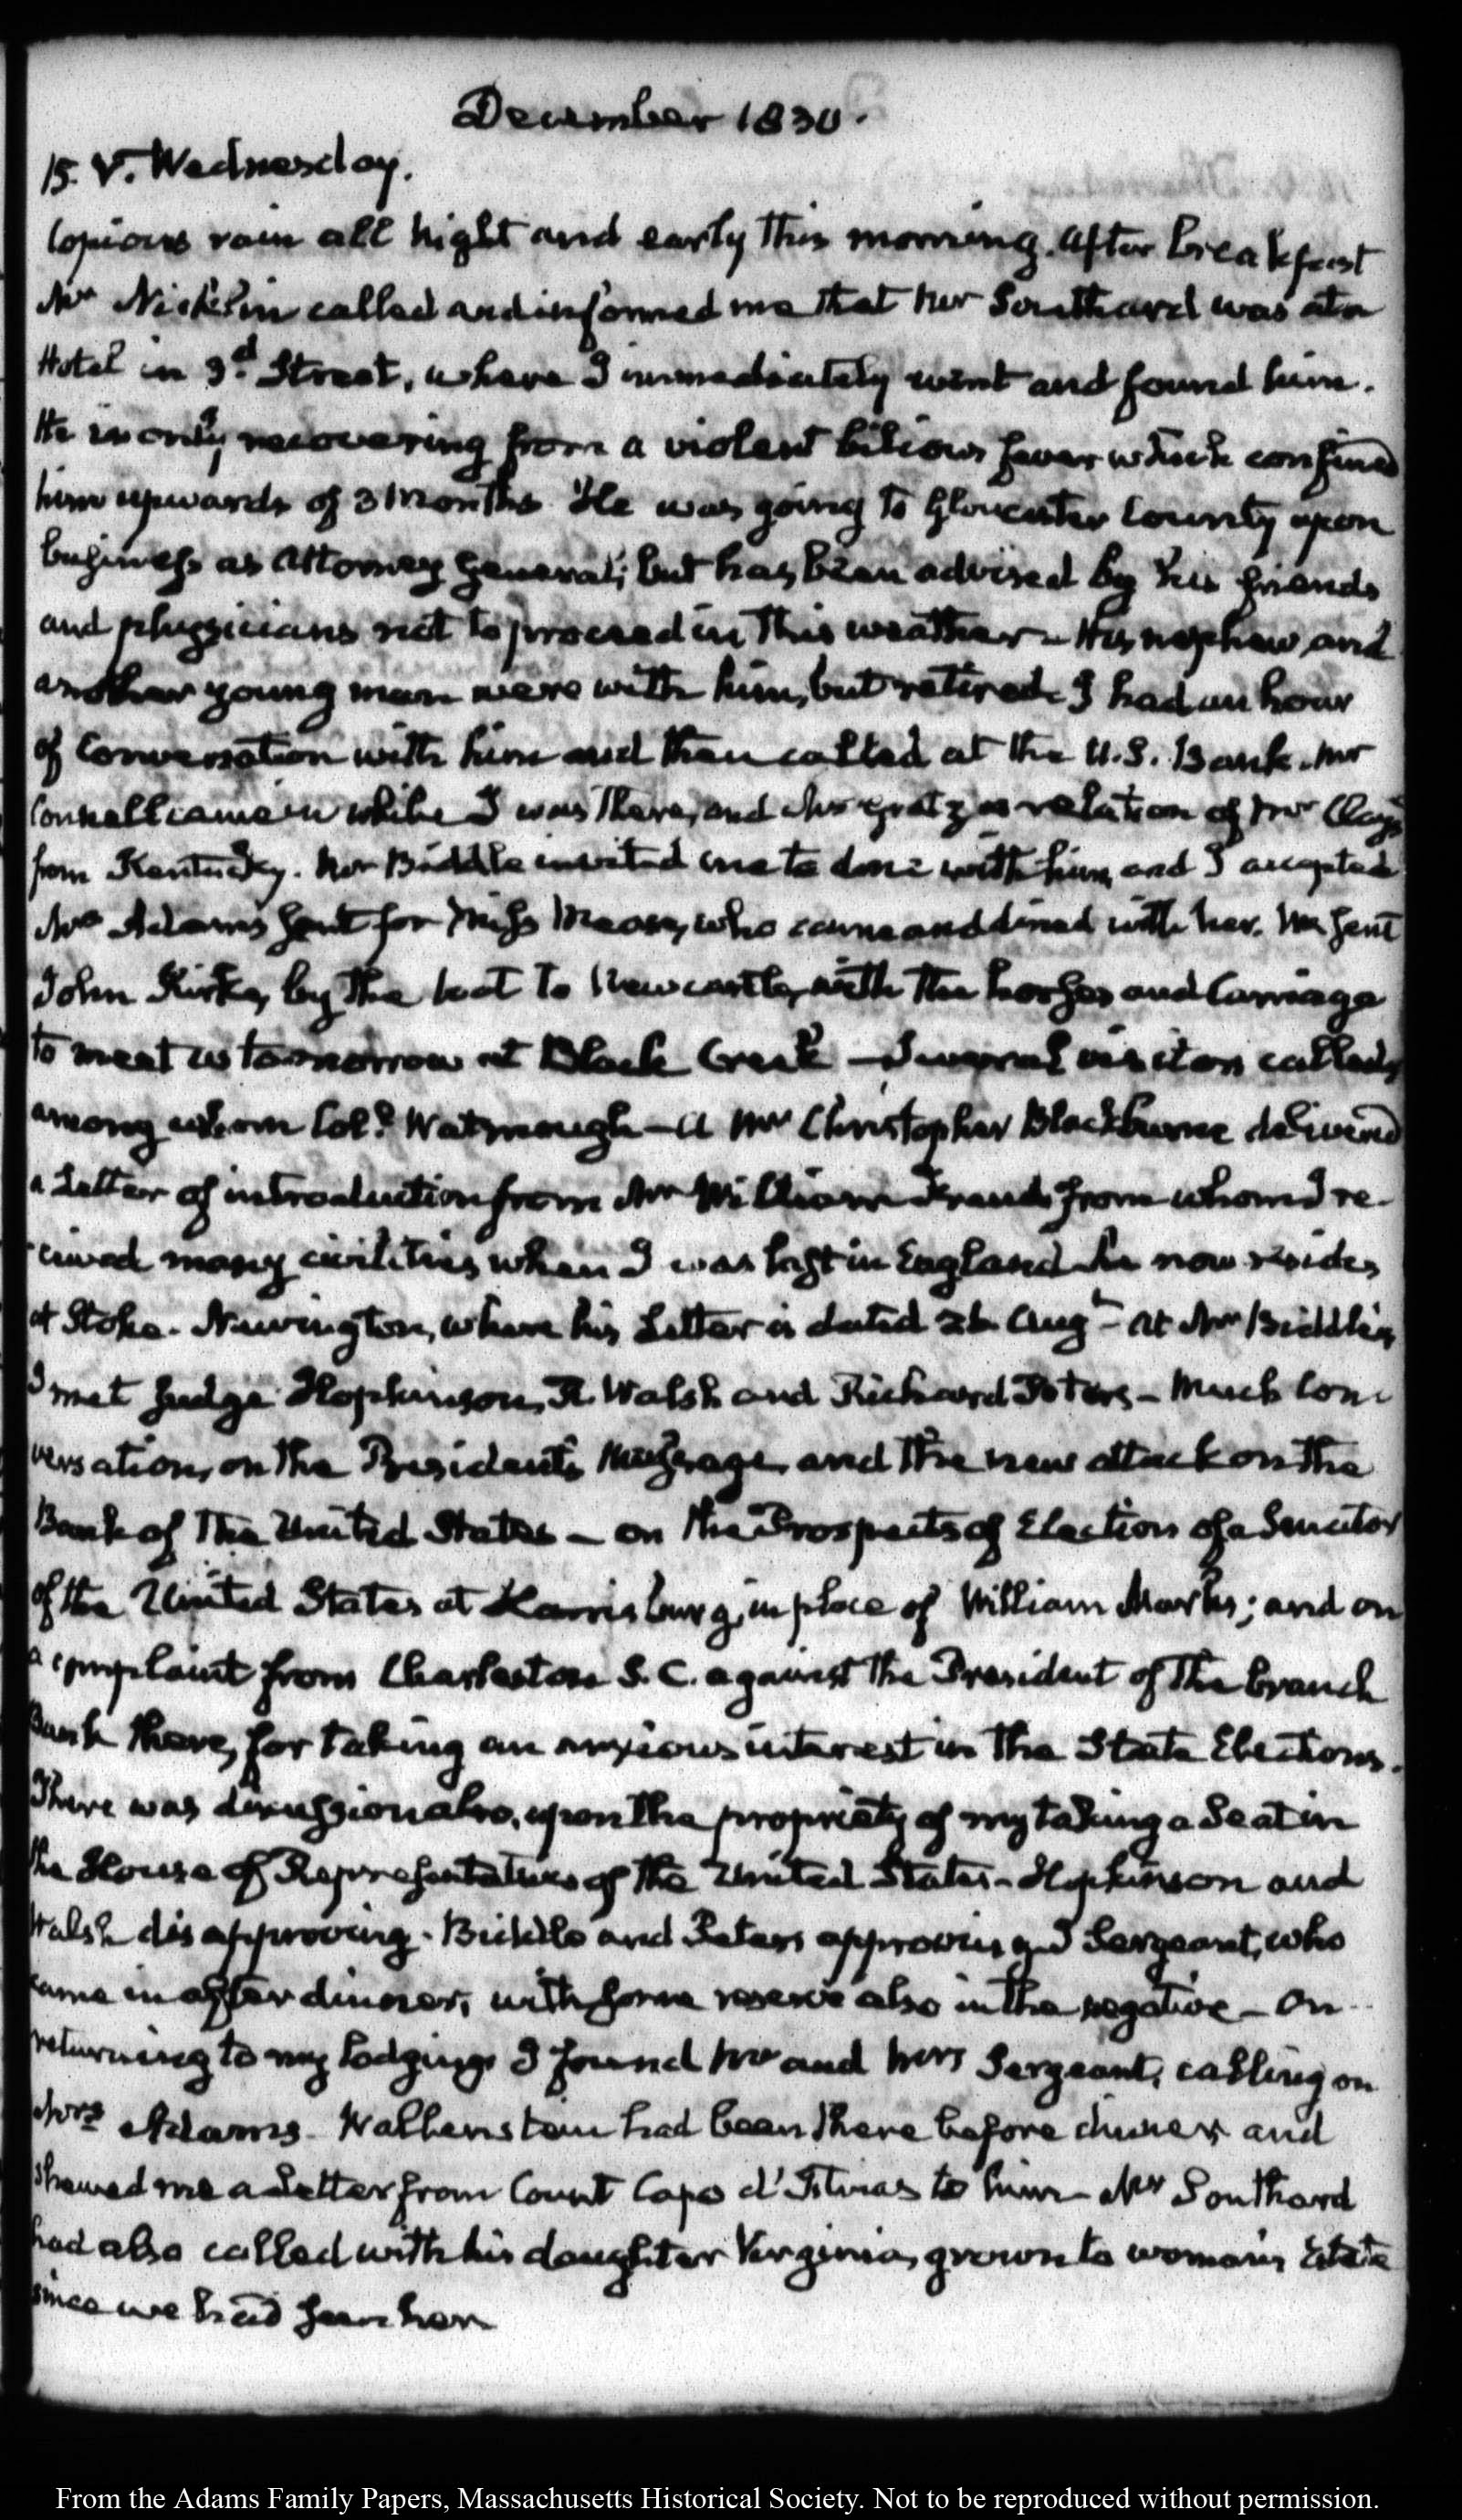 December 1830.
15. V. Wednesday.
Copious rain all night and early this morning. After breakfast
Mr Nicklin called and informed me that Mr Southard was at a
Hotel in 3d. Street, where I immediately went and found him.
He is only recovering from a violent bilious fever which confined
him upwards of 3 Months. He was going to Gloucester County upon
business as Attorney General; but has been advised by his friends
and physicians not to proceed in this weather— His nephew and
another young man were with him, but retired. I had an hour
of Conversation with him and then called at the U.S. Bank. Mr
Connell came in while I was there, and Mr Gratz a relation of Mr Clay's
from Kentucky. Mr Biddle invited me to dine with him, and I accepted
Mrs Adams sent for Miss Mease, who came and dined with her. We sent
John Kirke, by the boat to Newcastle, with the horses and Carriage
to meet us tomorrow at Black Creek — Several visitors called,
among whom Coll. Watmough — A Mr Christopher Blackburne delivered
a Letter of introduction from Mr William Frend from whom I re-
ceived many civilities when I was last in England he now resides
at Stoke-Newington, where his Letter is dated 26 Augt— At Mr Biddle's
I met Judge Hopkinson, R. Walsh and Richard Peters — Much con-
versation, on the President's Message, and the new attack on the
Bank of the United States — on the Prospects of Election of a Senator
of the United States at Harrisburg, in place of William Marks; and on
a complaint from Charleston S.C. against the President of the branch
Bank there, for taking an anxious interest in the State Elections.
There was discussion also, upon the propriety of my taking a Seat in
the House of Representatives of the United States — Hopkinson and
Walsh disapproving. Biddle and Peters approving and Sergeant, who
came in after dinner, with some reserve also in the negative — On
returning to my lodgings I found Mr and Mrs Sergeant, calling on
Mrs Adams. Wallenstein had been there before dinner, and
shewed me a Letter from Count Capo d'Istrias to him — Mr Southard
had also called with his daughter Virginia, grown to woman's Estate
since we had seen her
From the Adams Family Papers, Massachusetts Historical Society. Not to be reproduced without permission.